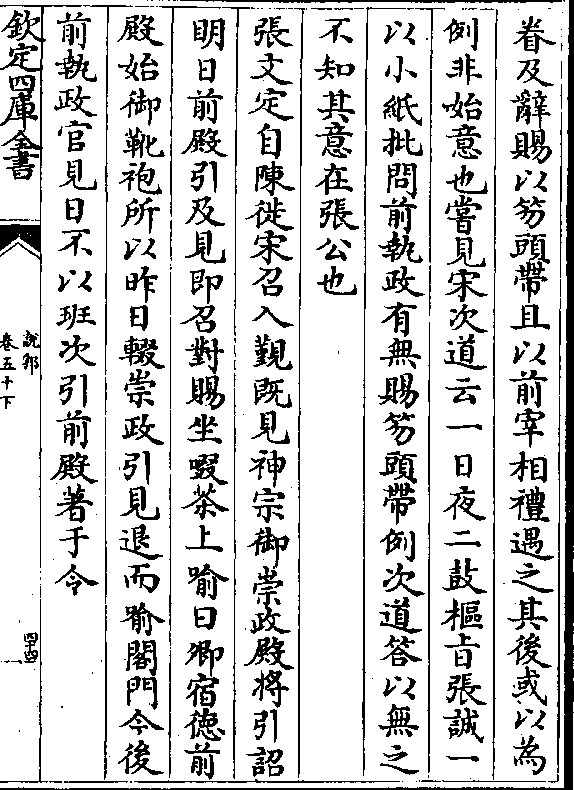 眷及辭賜以笏頭帶且以前宰相禮遇之其後或以為
例非始意也嘗見宋次道云一日夜二鼓樞旨張誠一
以小紙批問前執政有無賜笏頭帶例次道答以無之
不知其意在張公也
張文定自陳徙宋召入覲既見神宗御崇政殿將引詔
明日前殿引及見即召對賜坐啜茶上喻曰卿宿德前
殿始御靴袍所以昨日輟崇政引見退而喻閤門今後
前執政官見日不以班次引前殿著于令
欽定四庫全書
說郛
卷五十下
四十四